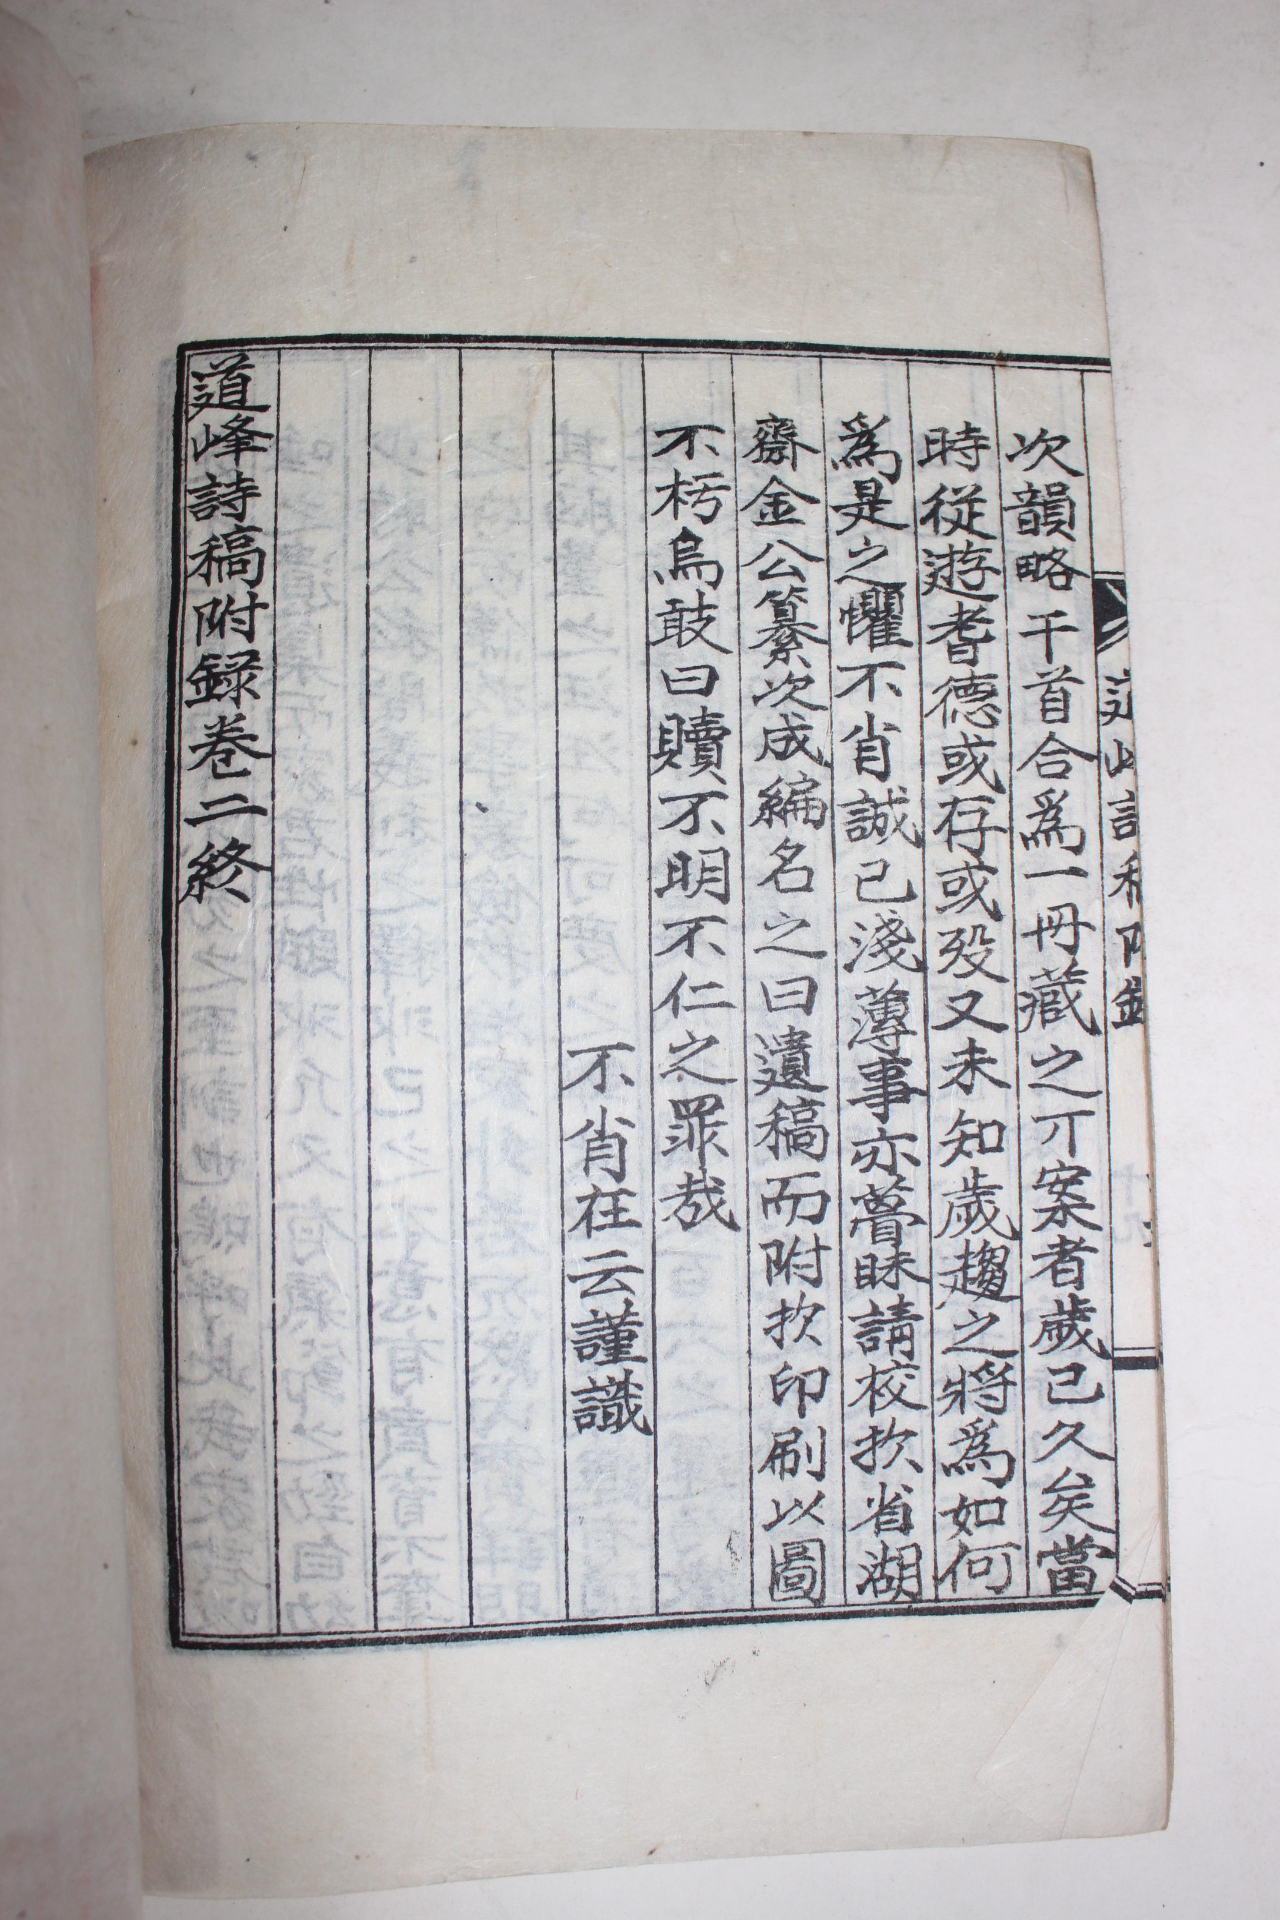 道峰詩稿附錄
次韻略干首合爲一冊藏之丌案者歲已久矣當
時從遊耆德或存或歿又未知歲趨之將爲如何
爲是之懼不肖誠已淺薄事亦瞢昧請校於省湖
齋金公纂次成編名之曰遺稿而附於印刷以圖
不朽烏敢曰贖不明不仁之罪哉
不肖在云謹識
道峰詩稿附錄卷二終